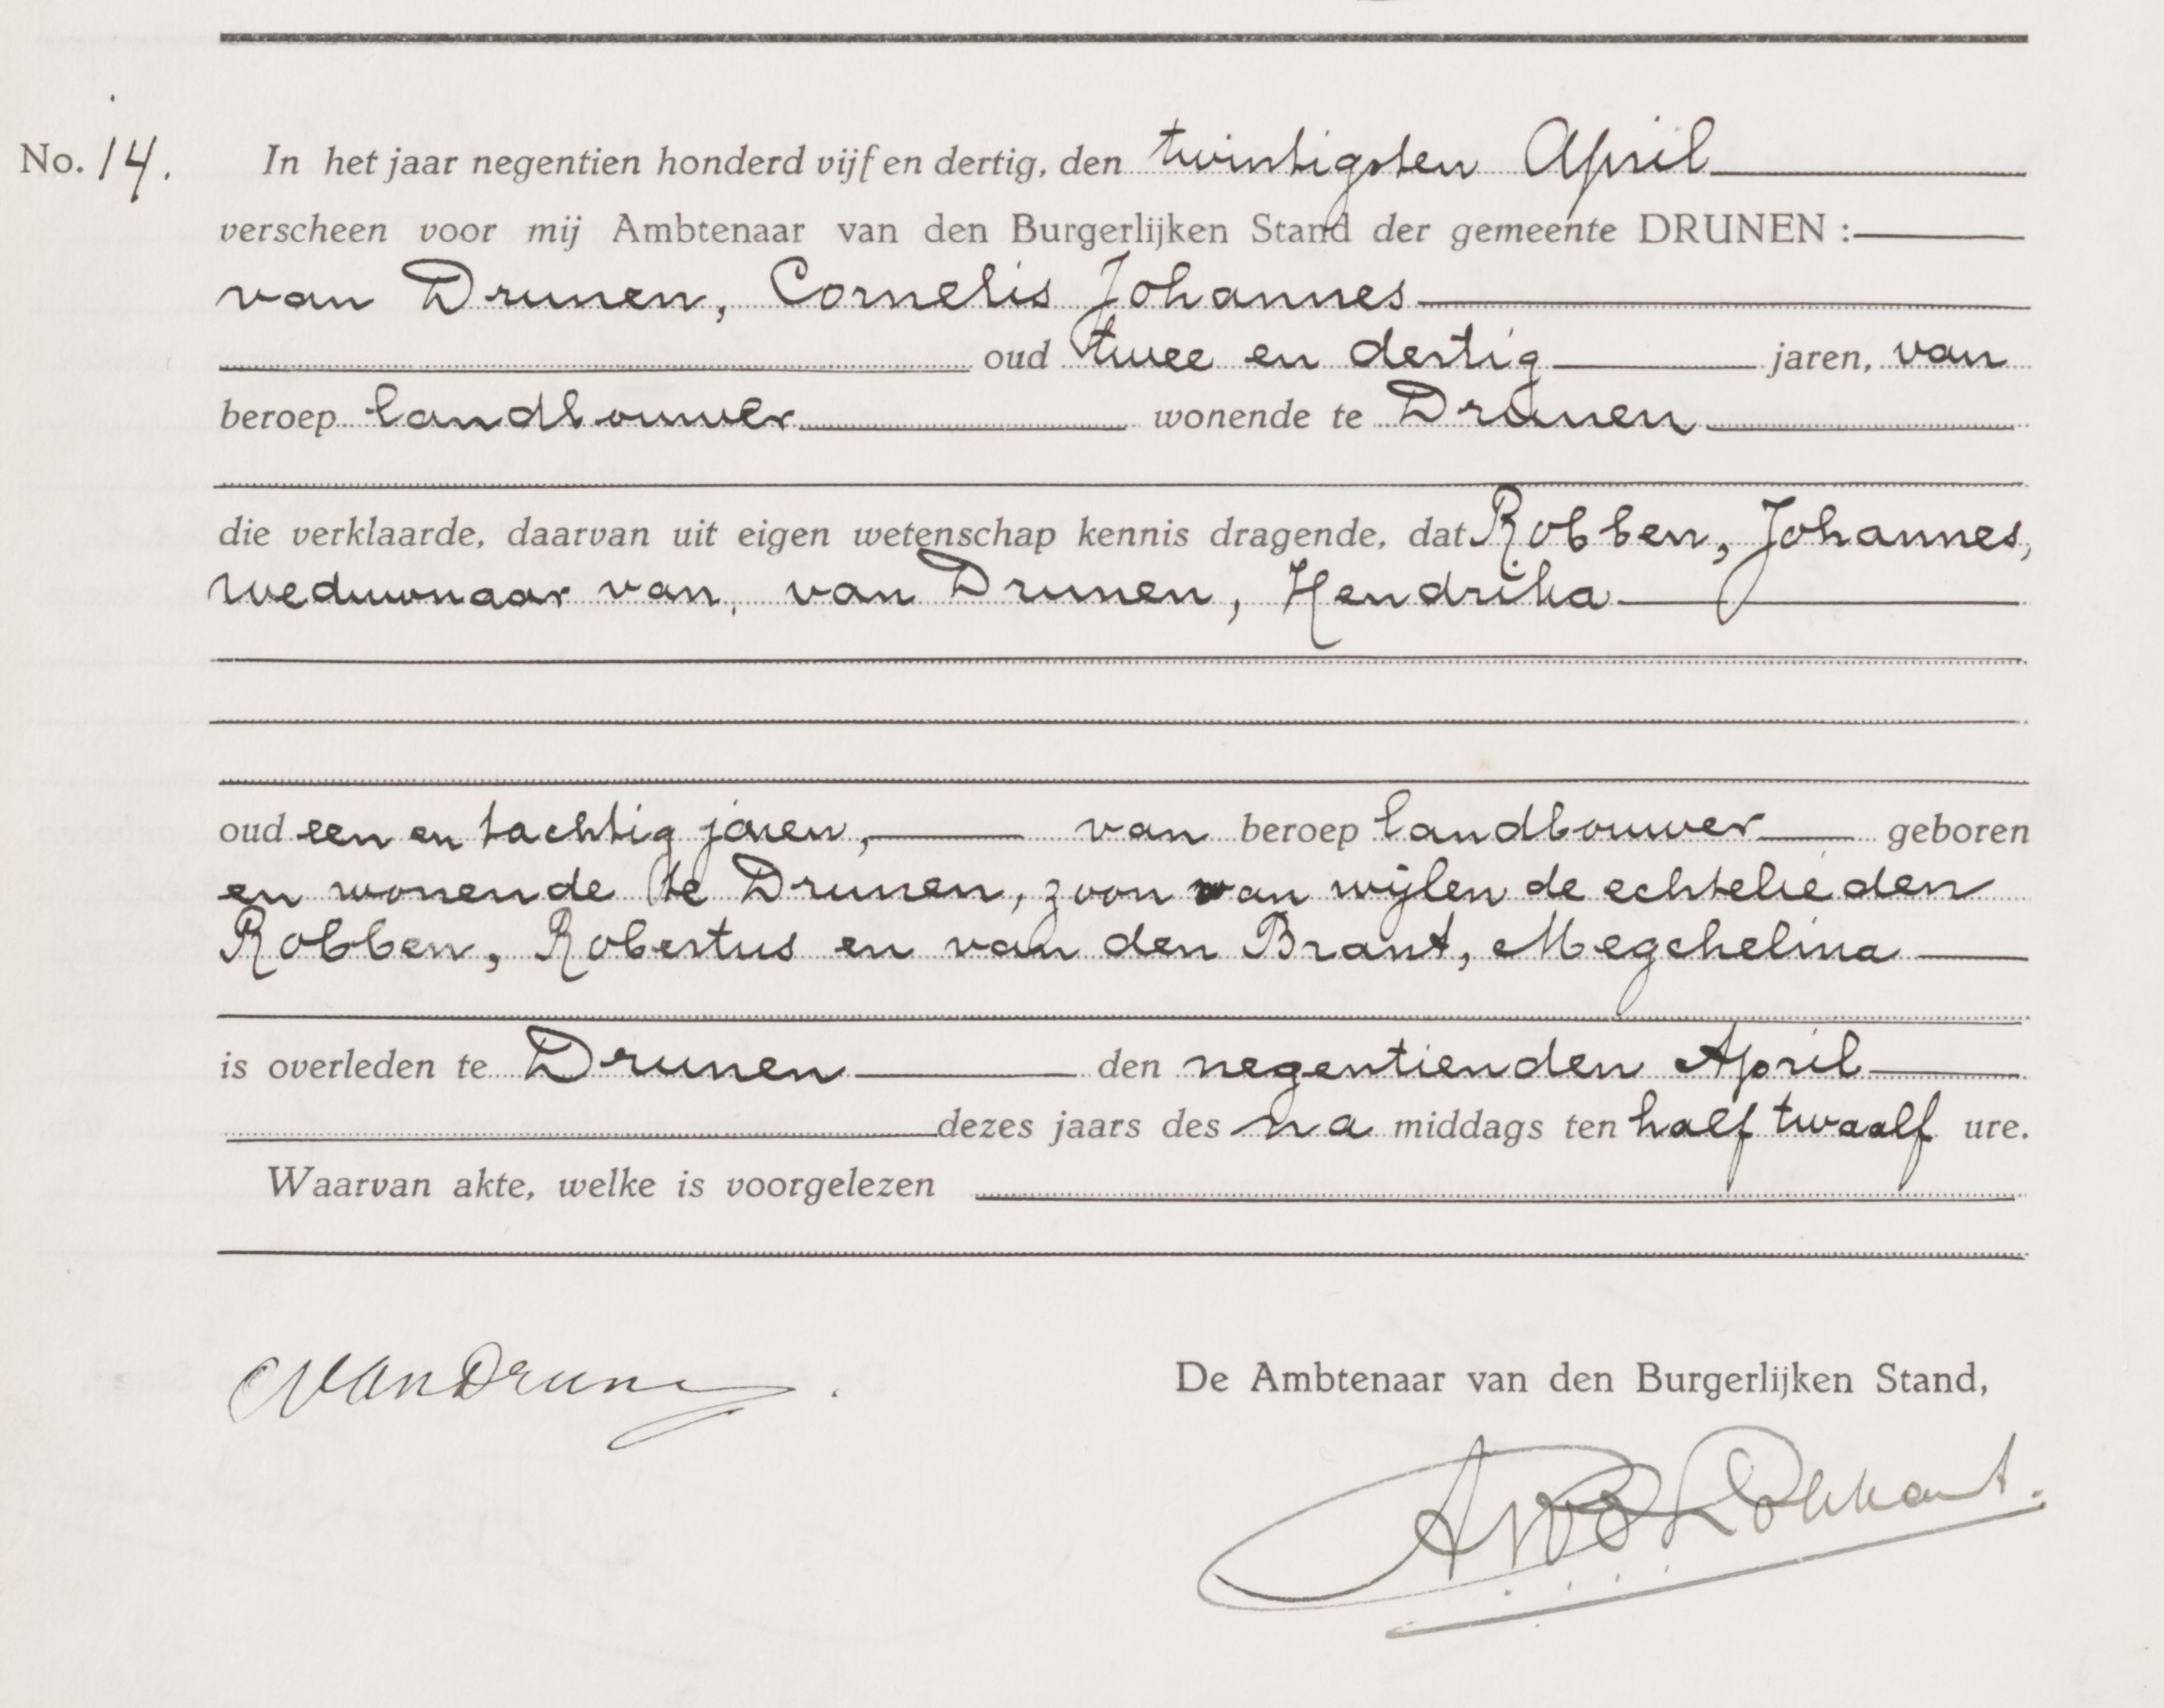 No. 14. In het jaar negentien honderd vijf en dertig, den twintigsten April
verscheen voor mij Ambtenaar van den Burgerlijken Stand der gemeente DRUNEN :
van Drunen, Cornelis Johannes
oud twee en dertig jaren, van
beroep landbouwer wonende te Drunen
die verklaarde, daarvan uit eigen wetenschap kennis dragende, dat Robben, Johannes,
weduwnaar van, van Drunen, Hendrika
oud een en tachtig jaren, van beroep landbouwer geboren
en wonende te Drunen, zoon van wijlen de echtelieden
Robben, Robertus en van den Brant, Megchelina
is overleden te Drunen den negentienden April
dezes jaars des na middags ten half twaalf ure.
Waarvan akte, welke is voorgelezen
CvanDrunen.
De Ambtenaar van den Burgerlijken Stand,